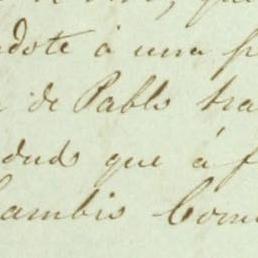 dote á una p
de Pablo tra
dudo que á f
Cambio Com